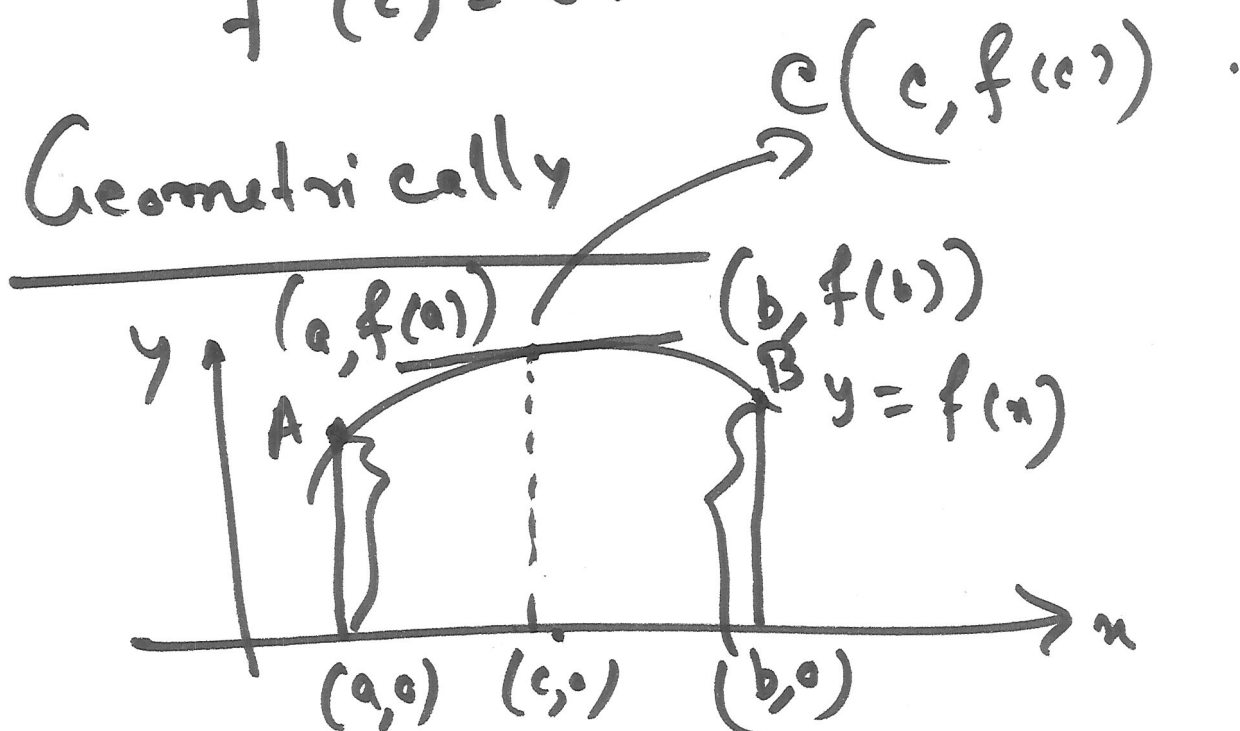 f (c) = 0
C(c, f(c)) .
Geometrically
(a, f(a)) (b, f(b))
y
A B y = f(x)
x
(a,0) (c,0) (b,0)